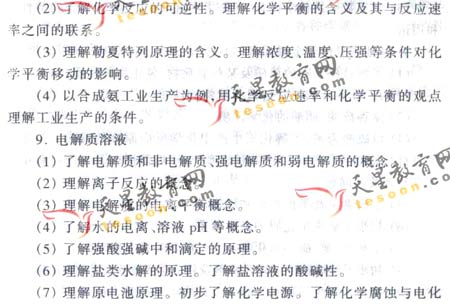 (2) 了解化学反应的可逆性。理解化学平衡的含义及其与反应速
率之间的联系。
(3) 理解勒夏特列原理的含义。理解浓度、温度、压强等条件对化
学平衡移动的影响。
(4) 以合成氨工业生产为例,用化学反应速率和化学平衡的观点
理解工业生产的条件。
9. 电解质溶液
(1) 了解电解质和非电解质、强电解质和弱电解质的概念。
(2) 理解离子反应的概念。
(3) 理解电解质的电离平衡概念。
(4) 了解水的电离、溶液 pH 等概念。
(5) 了解强酸强碱中和滴定的原理。
(6) 理解盐类水解的原理。了解盐溶液的酸碱性。
(7) 理解原电池原理。初步了解化学电源。了解化学腐蚀与电化
天星教育网
tesoon.com
天星教育网
tesoon.com
天星教育网
tesoon.com
天星教育网
tesoon.com